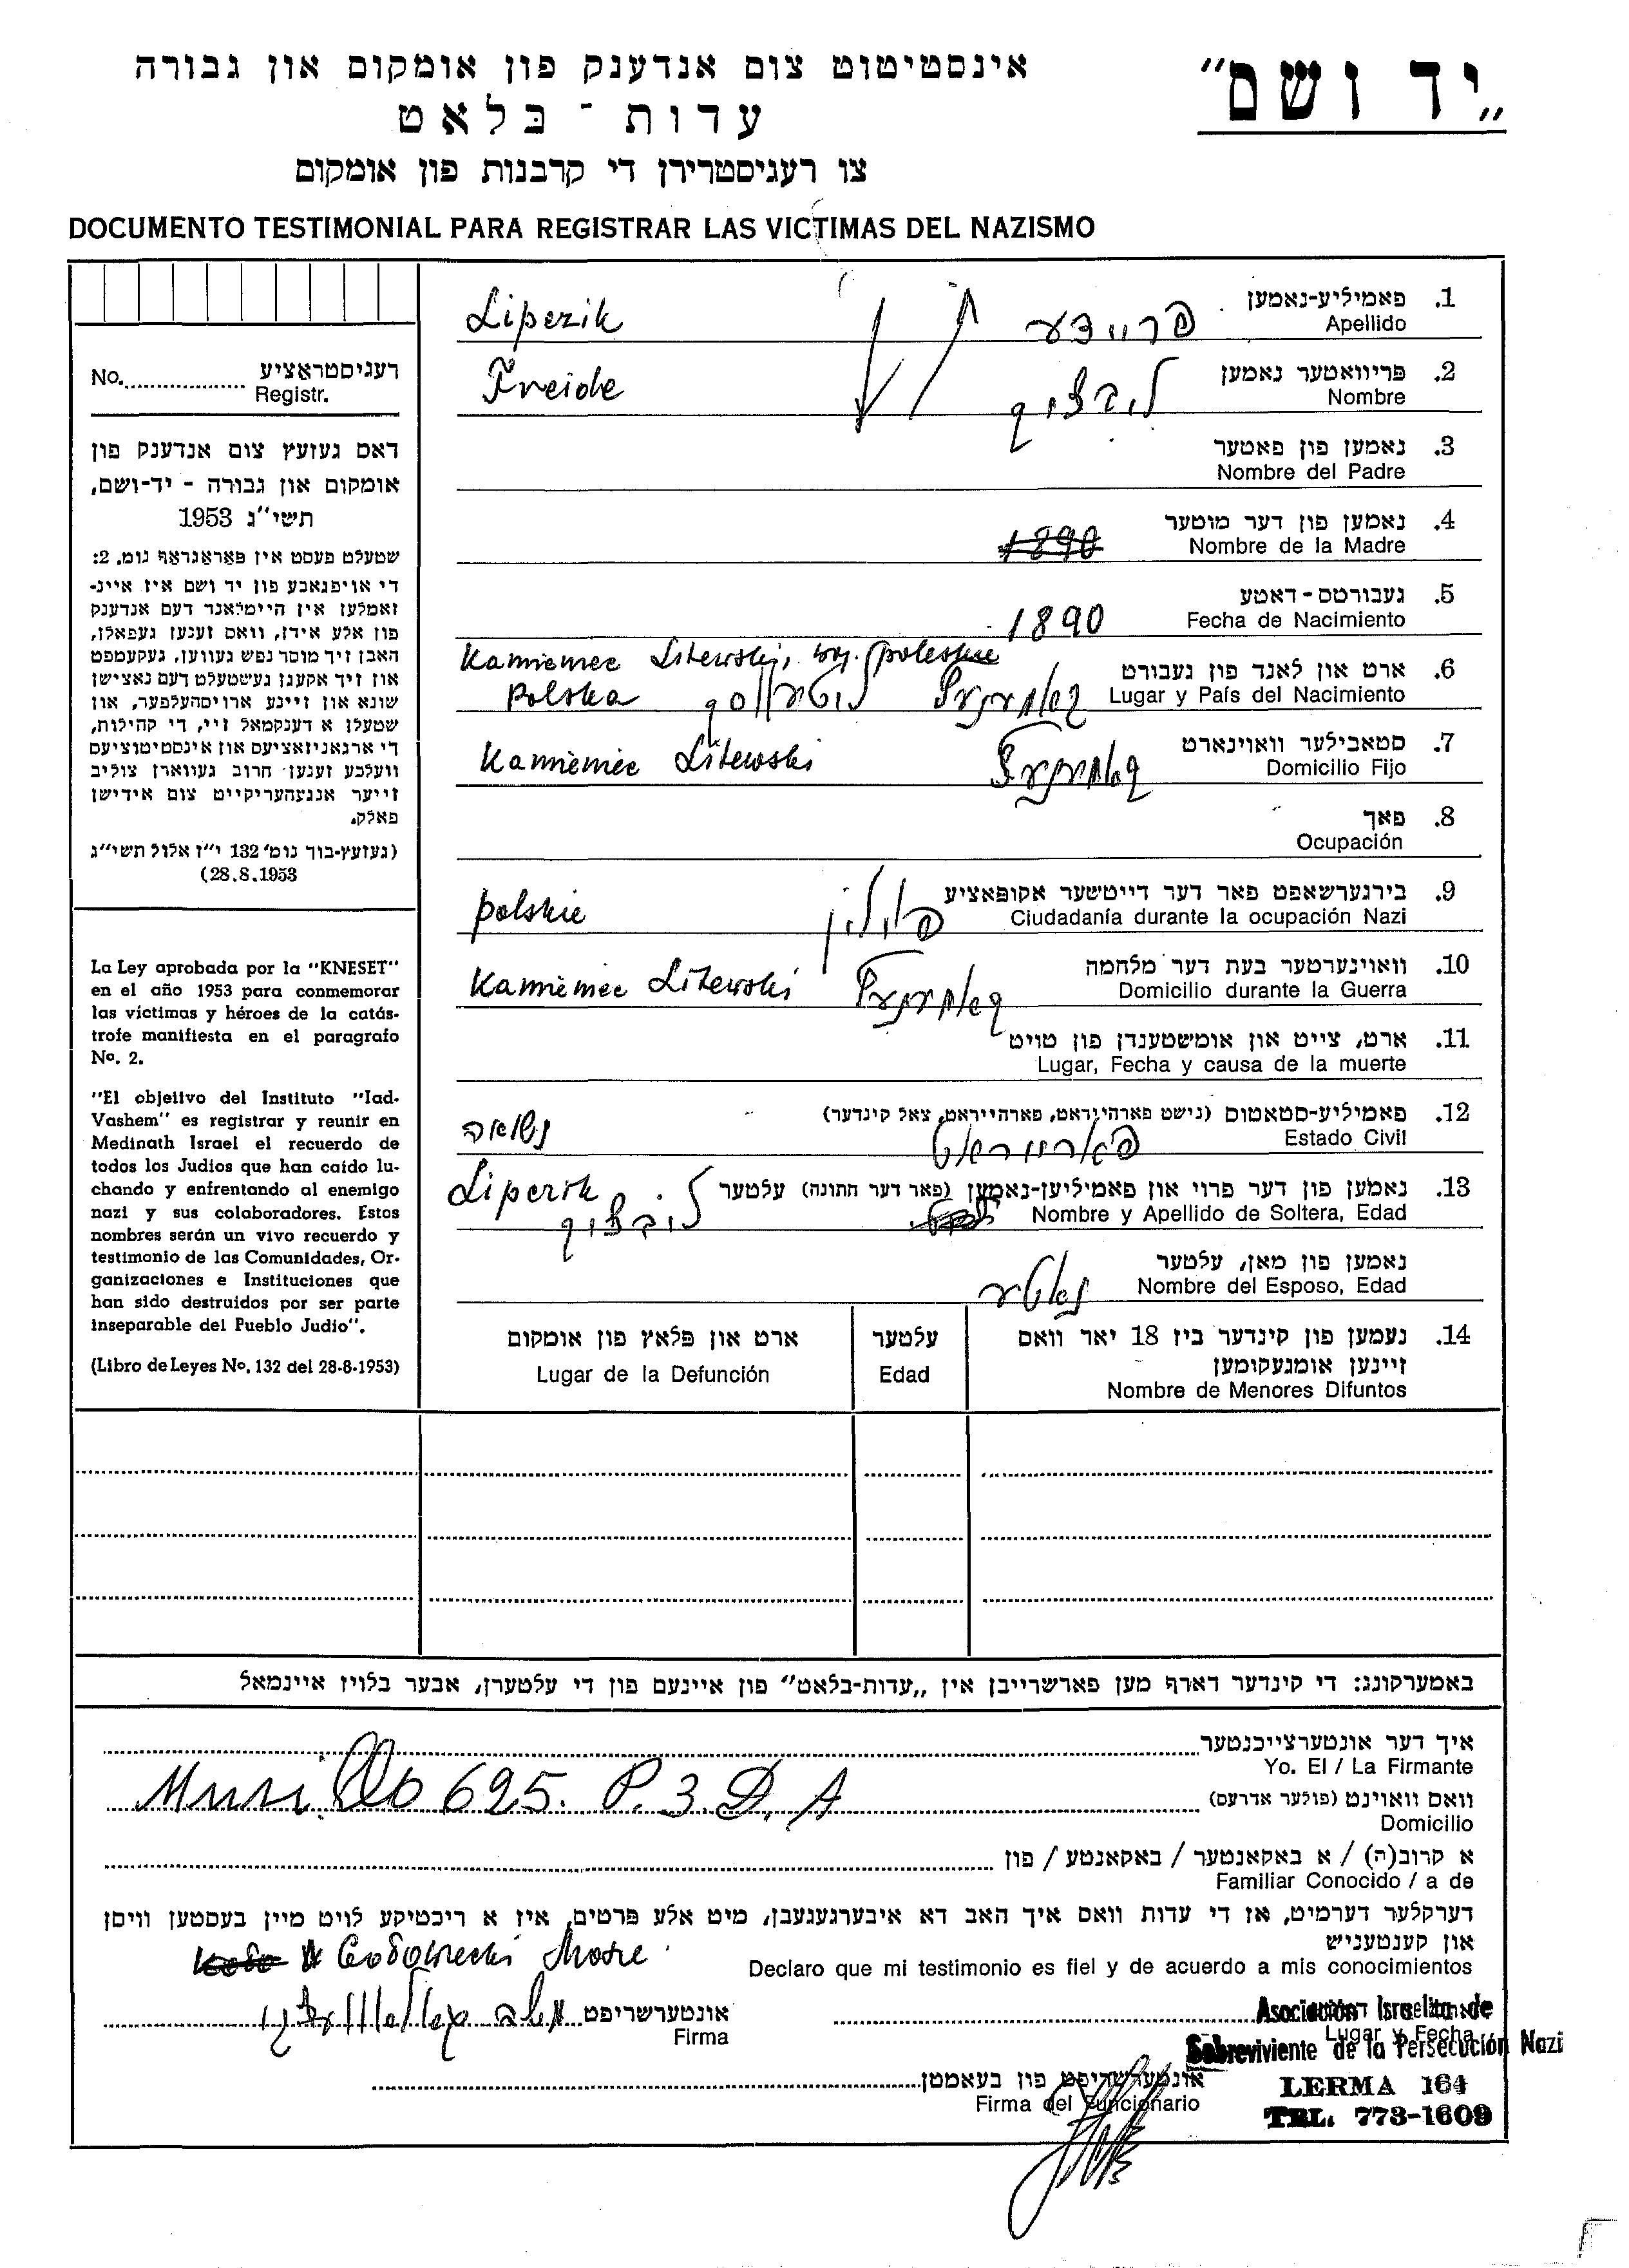 „יד ושם"
אינסטיטוט צום אנדענק פון אומקום און גבורה
עדות - בלאט
צו רעגיסטרירן די קרבנות פון אומקום
DOCUMENTO TESTIMONIAL PARA REGISTRAR LAS VICTIMAS DEL NAZISMO
רעגיסטראציע
No. Registr.
דאס געזעץ צום אנדענק פון
אומקום און גבורה - יד-ושם,
תשי"ג 1953
שטעלט פעסט אין פאראגראף נומ. 2:
די אויפגאבע פון יד ושם איז איינ-
זאמלען אין היימלאנד דעם אנדענק
פון אלע אידן, וואס זענען געפאלן,
האבן זיך מוסר נפש געווען, געקעמפט
און זיך אקעגן געשטעלט דעם נאצישן
שונא און זיינע ארויסהעלפער, און
שטעלן א דענקמאל זיי, די קהילות,
די ארגאניזאציעס און אינסטיטוציעס
וועלכע זענען חרוב געווארן צוליב
זייער אנגעהעריקייט צום אידישן
פאלק.
(געזעץ-בוך נומ' 132 י"ז אלול תשי"ג
28.8.1953)
La Ley aprobada por la "KNESET"
en el año 1953 para conmemorar
las víctimas y héroes de la catás-
trofe manifiesta en el paragrafo
Nº. 2.
"El objetivo del Instituto "Iad-
Vashem" es registrar y reunir en
Medinath Israel el recuerdo de
todos los Judíos que han caído lu-
chando y enfrentando al enemigo
nazi y sus colaboradores. Estos
nombres serán un vivo recuerdo y
testimonio de las Comunidades, Or-
ganizaciones e Instituciones que
han sido destruidos por ser parte
inseparable del Pueblo Judío".
(Libro de Leyes Nº. 132 del 28-8-1953)
1. פאמיליע-נאמען
Apellido
פריידע Lipczik
2. פריוואטער נאמען
Nombre
ליבציק Freide
3. נאמען פון פאטער
Nombre del Padre
4. נאמען פון דער מוטער
Nombre de la Madre
1890
5. געבורטס-דאטע
Fecha de Nacimiento
1890
6. ארט און לאנד פון געבורט
Lugar y País del Nacimiento
Kamieniec Litewski, woj. poleskie
Polska
7. סטאבילער וואוינארט
Domicilio Fijo
Kamieniec Litewski
8. פאך
Ocupación
9. בירגערשאפט פאר דער דייטשער אקופאציע
Ciudadanía durante la ocupación Nazi
פוילין polskie
10. וואוינערטער בעת דער מלחמה
Domicilio durante la Guerra
Kamieniec Litewski
11. ארט, צייט און אומשטענדן פון טויט
Lugar, Fecha y causa de la muerte
12. פאמיליע-סטאטוס (נישט פארהייראט, פארהייראט, צאל קינדער)
Estado Civil
נשואה
13. נאמען פון דער פרוי און פאמיליען-נאמען (פאר דער חתונה) עלטער
Nombre y Apellido de Soltera, Edad
ליבציק Lipczik
נאמען פון מאן, עלטער
Nombre del Esposo, Edad
14. נעמען פון קינדער ביז 18 יאר וואס
זיינען אומגעקומען
Nombre de Menores Difuntos
עלטער
Edad
ארט און פלאץ פון אומקום
Lugar de la Defunción
באמערקונג: די קינדער דארף מען פארשרייבן אין „עדות-בלאט" פון איינעם פון די עלטערן, אבער בלויז איינמאל
איך דער אונטערצייכנטער
Yo. El / La Firmante
וואס וואוינט (פולער אדרעס)
Domicilio
625. P. 3. D. A
א קרוב(ה) / א באקאנטער / באקאנטע / פון
Familiar Conocido / a de
דערקלער דערמיט, אז די עדות וואס איך האב דא איבערגעגעבן, מיט אלע פרטים, איז א ריכטיקע לויט מיין בעסטען וויסן
און קענטעניש
Declaro que mi testimonio es fiel y de acuerdo a mis conocimientos
אונטערשריפט
Firma
Lugar y Fecha
Asociación Israelita de
Sobreviviente de la Persecución Nazi
LERMA 164
TEL. 773-1609
אונטערשריפט פון בעאמטן
Firma del Funcionario